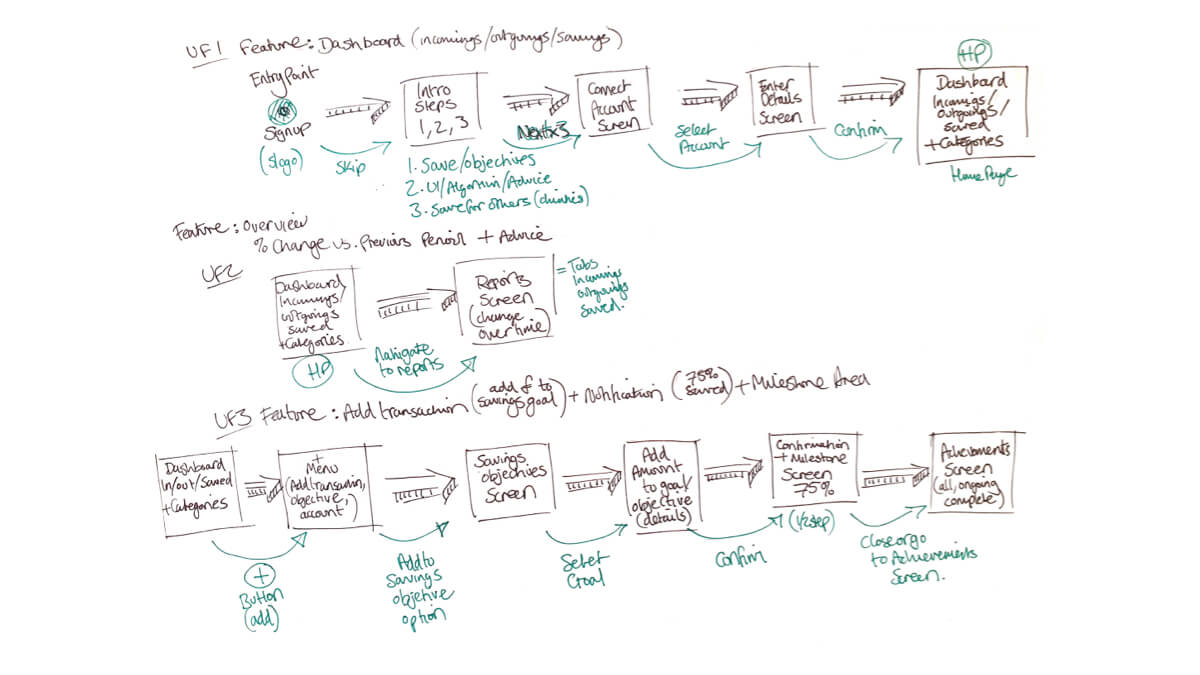 UF1 Feature: Dashboard (incomings/outgoings/savings)
Entry Point
Signup
(slogo)
Skip
Intro
Steps
1, 2, 3
Next x3
1. Save/objectives
2. UI/Algorithm/Advice
3. Save for others (charities)
Connect
Account
Screen
Select
Account
Enter
Details
Screen
Confirm
HP
Dashboard
Incomings/
outgoings/
saved
+Categories
Home Page
Feature: Overview
% Change vs. Previous Period + Advice
UF2
Dashboard
Incomings/
outgoings
saved
+Categories
HP
Navigate
to reports
Reports
Screen
(change
over time)
= Tabs
Incomings
outgoings
saved.
UF3 Feature: Add transaction (add £ to savings goal) + Notification (75% saved) + Milestone Area
Dashboard
In/out/Saved
+Categories
+
Button
(add)
+
Menu
(Add transaction,
objective,
account)
Add to
Savings
objective
option
Savings
objectives
Screen
Select
Goal
Add
Amount
to goal/
objective
(details)
Confirm
Confirmation
+ Milestone
Screen
75%
(1/2 step)
Close or go
to Achievements
Screen.
Achievements
Screen
(all, ongoing
complete)